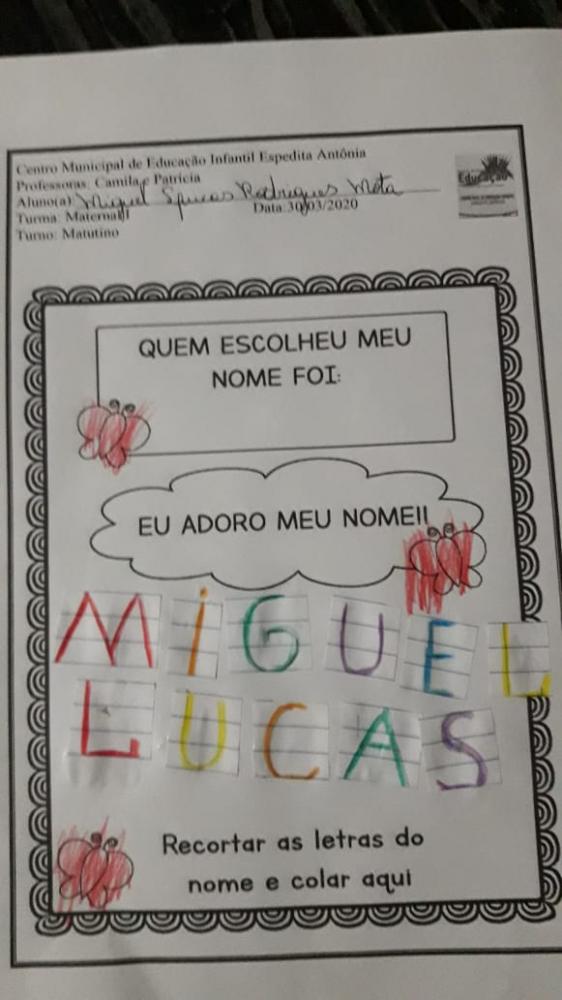 Centro Municipal de Educação Infantil Espedita Antônia
Professoras: Camila e Patrícia
Aluno(a) Miguel Rodrigues Mota
Turma: Maternal I Data: 30/03/2020
Turno: Matutino
Educação
QUEM ESCOLHEU MEU
NOME FOI:
EU ADORO MEU NOME!!
MiGUEL
LUCAS
Recortar as letras do
nome e colar aqui